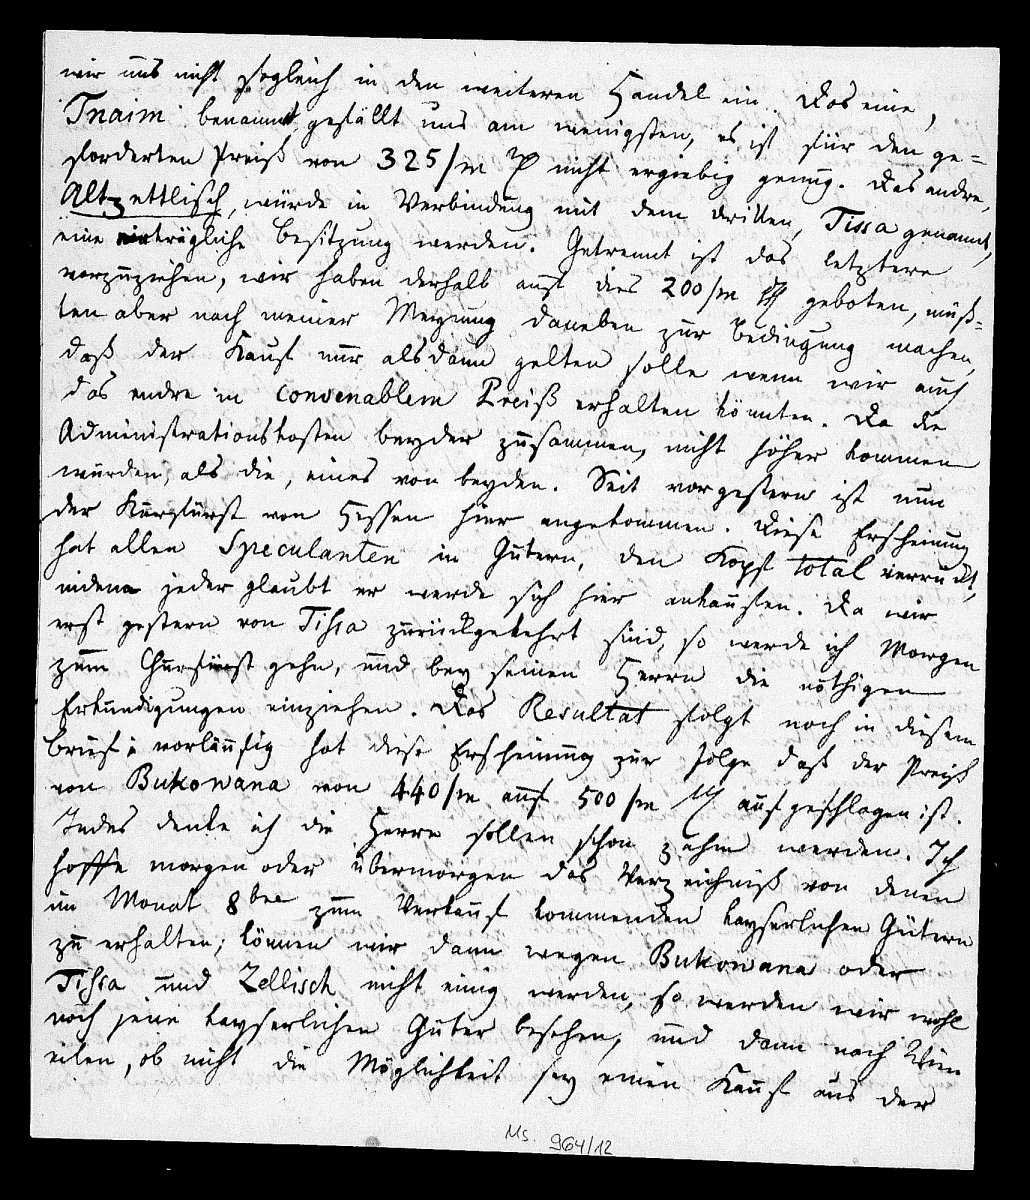 wir uns nicht sogleich in den weiteren Handel ein. Das eine,
Tnaim benannt, gefällt uns am wenigsten, es ist für den ge=
forderten Preiß von 325/m nicht ergiebig genug. Das andre,
Altzettlisch, würde in Verbindung mit dem dritten, Tissa genannt,
eine einträgliche Besitzung werden. Getrennt ist das letztere
vorzuziehen, wir haben deshalb auf dies 200/m geboten, müß=
ten aber nach meiner Meynung daneben zur Bedingung machen,
daß der Kauf nur alsdann gelten solle wenn wir auch
das andre in convenablem Preiß erhalten könnten. Da die
Administrationskosten beyder zusammen, nicht höher kommen
würden, als die, eines von beyden. Seit vorgestern ist nun
der Kurfürst von Hessen hier angekommen. Diese Erscheinung
hat allen Speculanten in Gütern, den Kopf total verrückt,
indem jeder glaubt er werde sich hier ankaufen. Da wir
erst gestern von Tissa zurückgekehrt sind, so werde ich Morgen
zum Churfürst gehn, und bey seinen Herrn die nöthigen
Erkundigungen einziehen. Das Resultat folgt noch in diesem
Brief; vorläufig hat diese Erscheinung zur Folge daß der Preiß
von Bukowana von 440/m auf 500/m aufgeschlagen ist.
Indes denke ich die Herrn sollen schon zahm werden. Ich
hoffe morgen oder übermorgen das Verzeichniß von denen
im Monat 8ber zum Verkauf kommenden kayserlichen Gütern
zu erhalten; können wir dann wegen Bukowana oder
Tissa und Zellisch nicht einig werden, so werden wir wohl
noch jene kayserlichen Güter besehen, und dann nach Wien
eilen, ob nicht die Möglichkeit sey einen Kauf aus der
Ms. 964/12